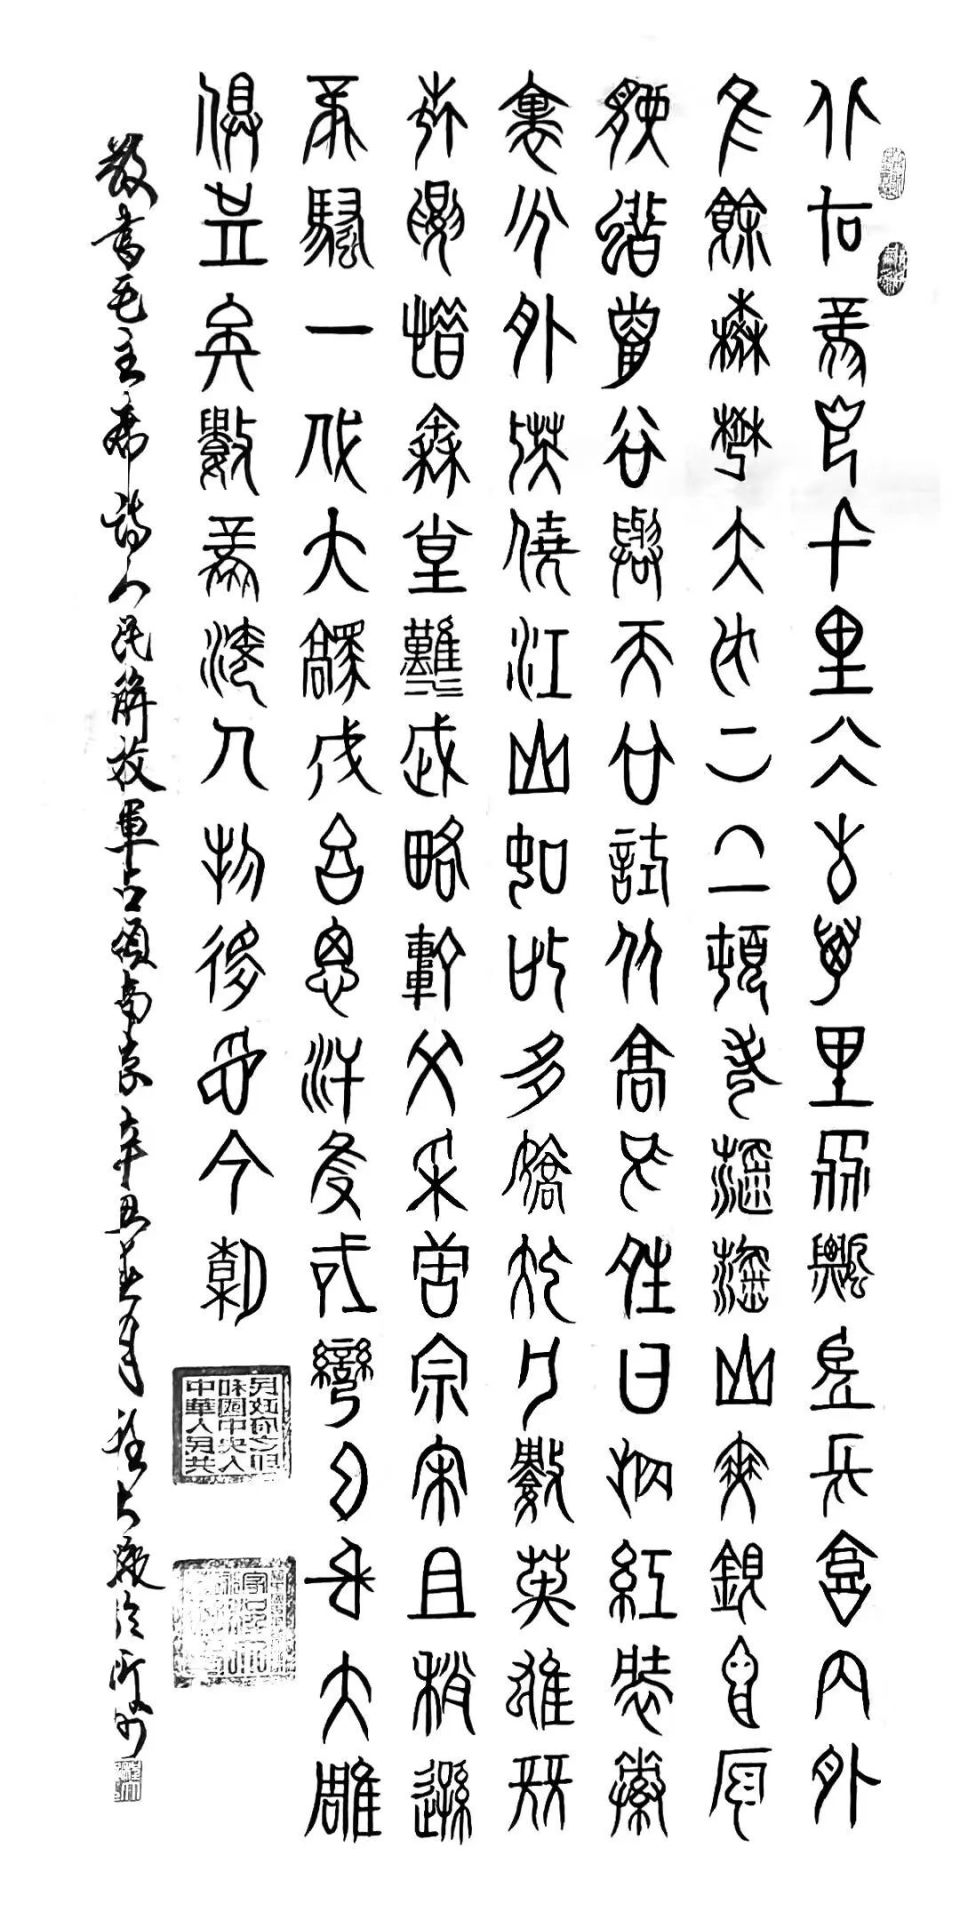 北国風光千里冰封萬里雪飄望長城内外
惟餘莽莽大河上下頓失滔滔山舞銀蛇原
馳蠟象欲與天公試比高須晴日看紅裝素
裹分外妖嬈江山如此多嬌引無數英雄競
折腰惜秦皇漢武略輸文采唐宗宋祖稍遜
風騷一代天驕成吉思汗只識彎弓射大雕
俱往矣數風流人物還看今朝
敬書毛主席詩人民解放軍占領南京辛丑春月大殿於沂州
中華人民共和國中央人民政府之印